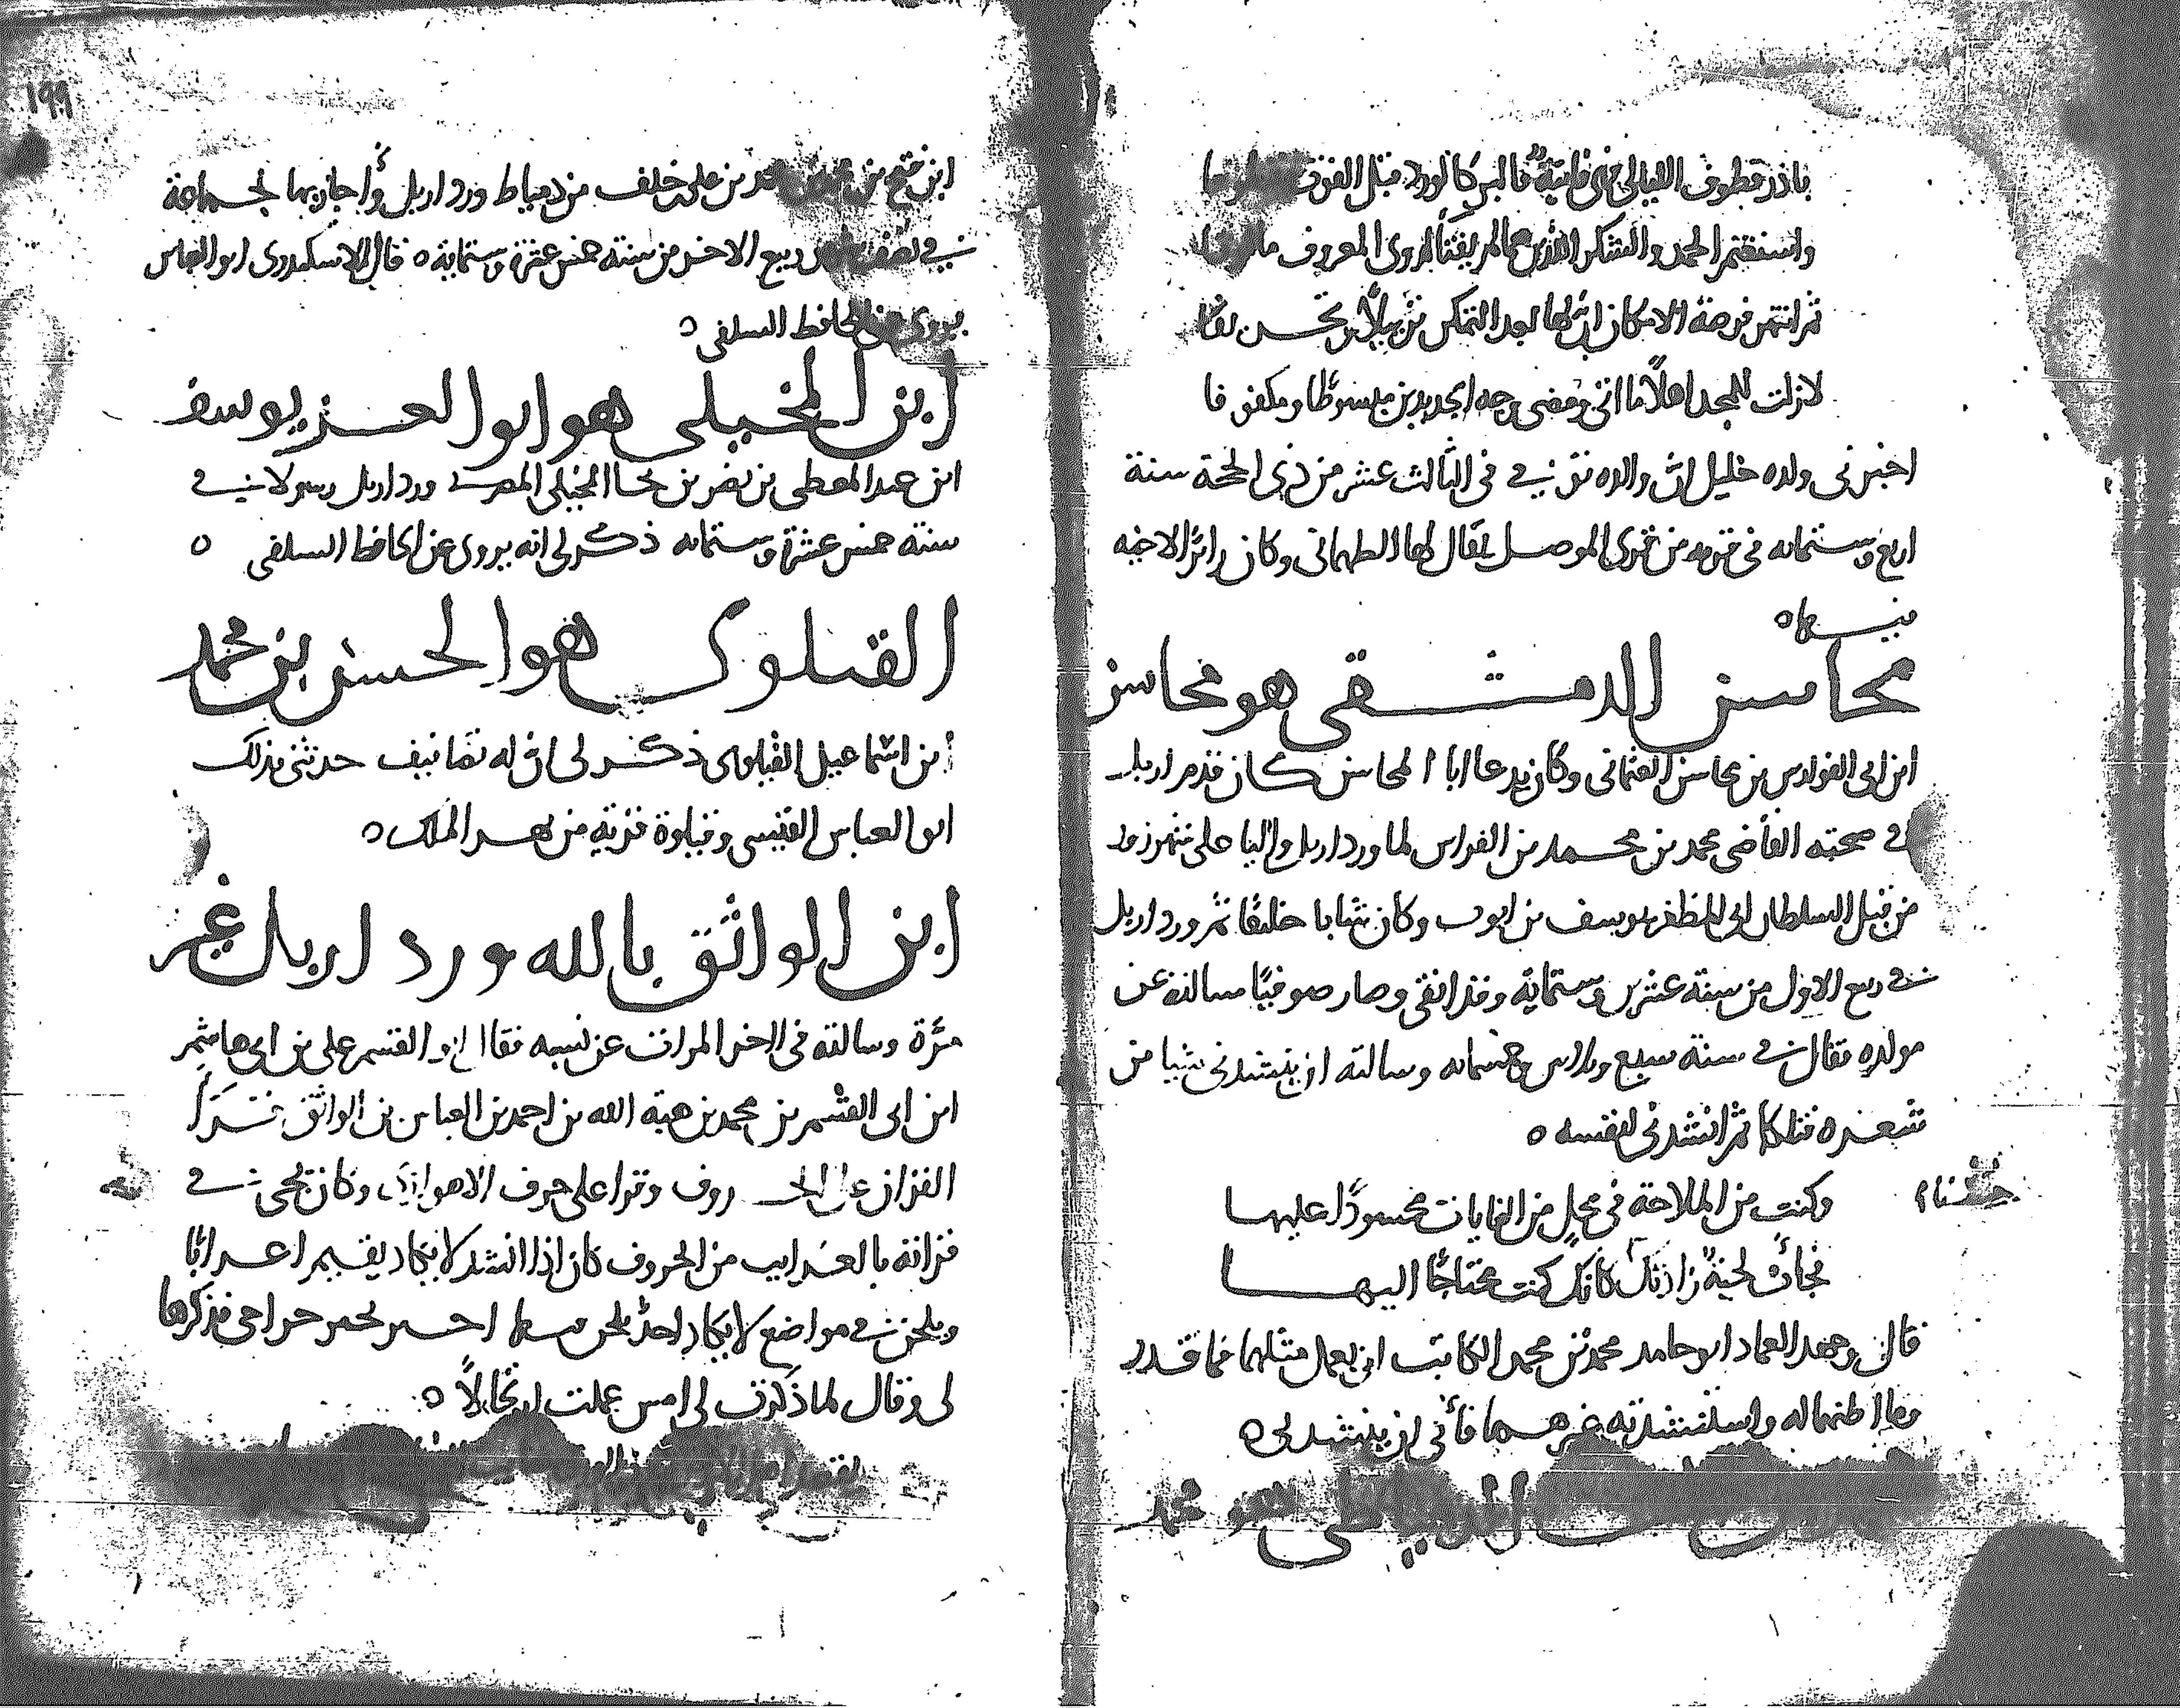 بادر قطوف الليالي فهي فانية فالبس كالورد قبل الفوت
واستغنم الحمد والشكر اللذين هما لم يفتآ لذوي المعروف
ثم انتهز فرصة الامكان ان لها بعد التمكن تزييلا
لازلت للمجد اهلا ما اتى ومضى وجه الجديدين مبسوطا و
اخبرني ولده خليل ان والده توفي في الثالث عشر من ذي الحجة سنة
اربع وستمائه في قريه من قرى الموصل يقال لها الطهماني وكان زائرا لاخيه
فيها ه
محاسن الدمشقي هو محاسن
ابن ابي الفوارس بن محاسن العثماني وكان يدعا ابا المحاسن كان قدم اربل
في صحبته القاضي محمد بن محمد بن الفراش لما ورد اربل واليا على شهرزور
من قبل السلطان ابي المظفر يوسف بن ايوب وكان شابا خليعا ثم ورد اربل
في ربيع الاول من سنة عشرين وستمائة وقد اتقى وصار صوفيا سالته عن
مولده فقال في سنة سبع وثلاثين وخمسمائه وسالته ان ينشدني شيا من
شعره فتلكا ثم انشدني لنفسه ه
وكنت من الملاحة في محل من الغايات محسودا عليها
فجات لحية زادتك كانك كنت محتاجا اليها
قال وجهد العماد ابو حامد محمد بن محمد الكاتب ان يعمل مثلهما فما قدر
واستنشدته غيرهما فابى ان ينشدني ه
هو محمد
١٩٩
ابن علي بن خلف من دمياط ورد اربل واجاز بها لجماعة
في نصف ربيع الاخر من سنة خمس عشرة وستماية ه قال الاسكندري ابو العباس
يروي عن الحافظ السلفي ه
ابن المخيلي هو ابو العز يوسف
ابن عبد المعطي بن نصر بن نجا المخيلي المصري ورد اربل رسولا في
سنه خمس عشرة وستمائه ذكر لي انه يروي عن الحافظ السلفي ه
القيلوي هو الحسن بن محمد
ابن اسماعيل القيلوي ذكر لي ان له تصانيف حدثني بذلك
ابو العباس القيسي وقيلوة قرية من نهر الملك ه
ابن الواثق بالله ورد اربل غير
مرة وسالته في اخر المرات عن نسبه فقال ابو القسم علي بن ابي هاشم
ابن ابي القسم بن محمد بن هبة الله بن احمد بن العباس بن الواثق قرا
القران على الحروف وقرا على حرف الاهوازي وكان يجي في
قراته بالغرايب من الحروف كان اذا انشد لا يكاد يقيم اعرابا
ويلحن في مواضع لا يكاد احد يلحن
لي وقال لما ذكرت لي امس عملت ارتجالا ه